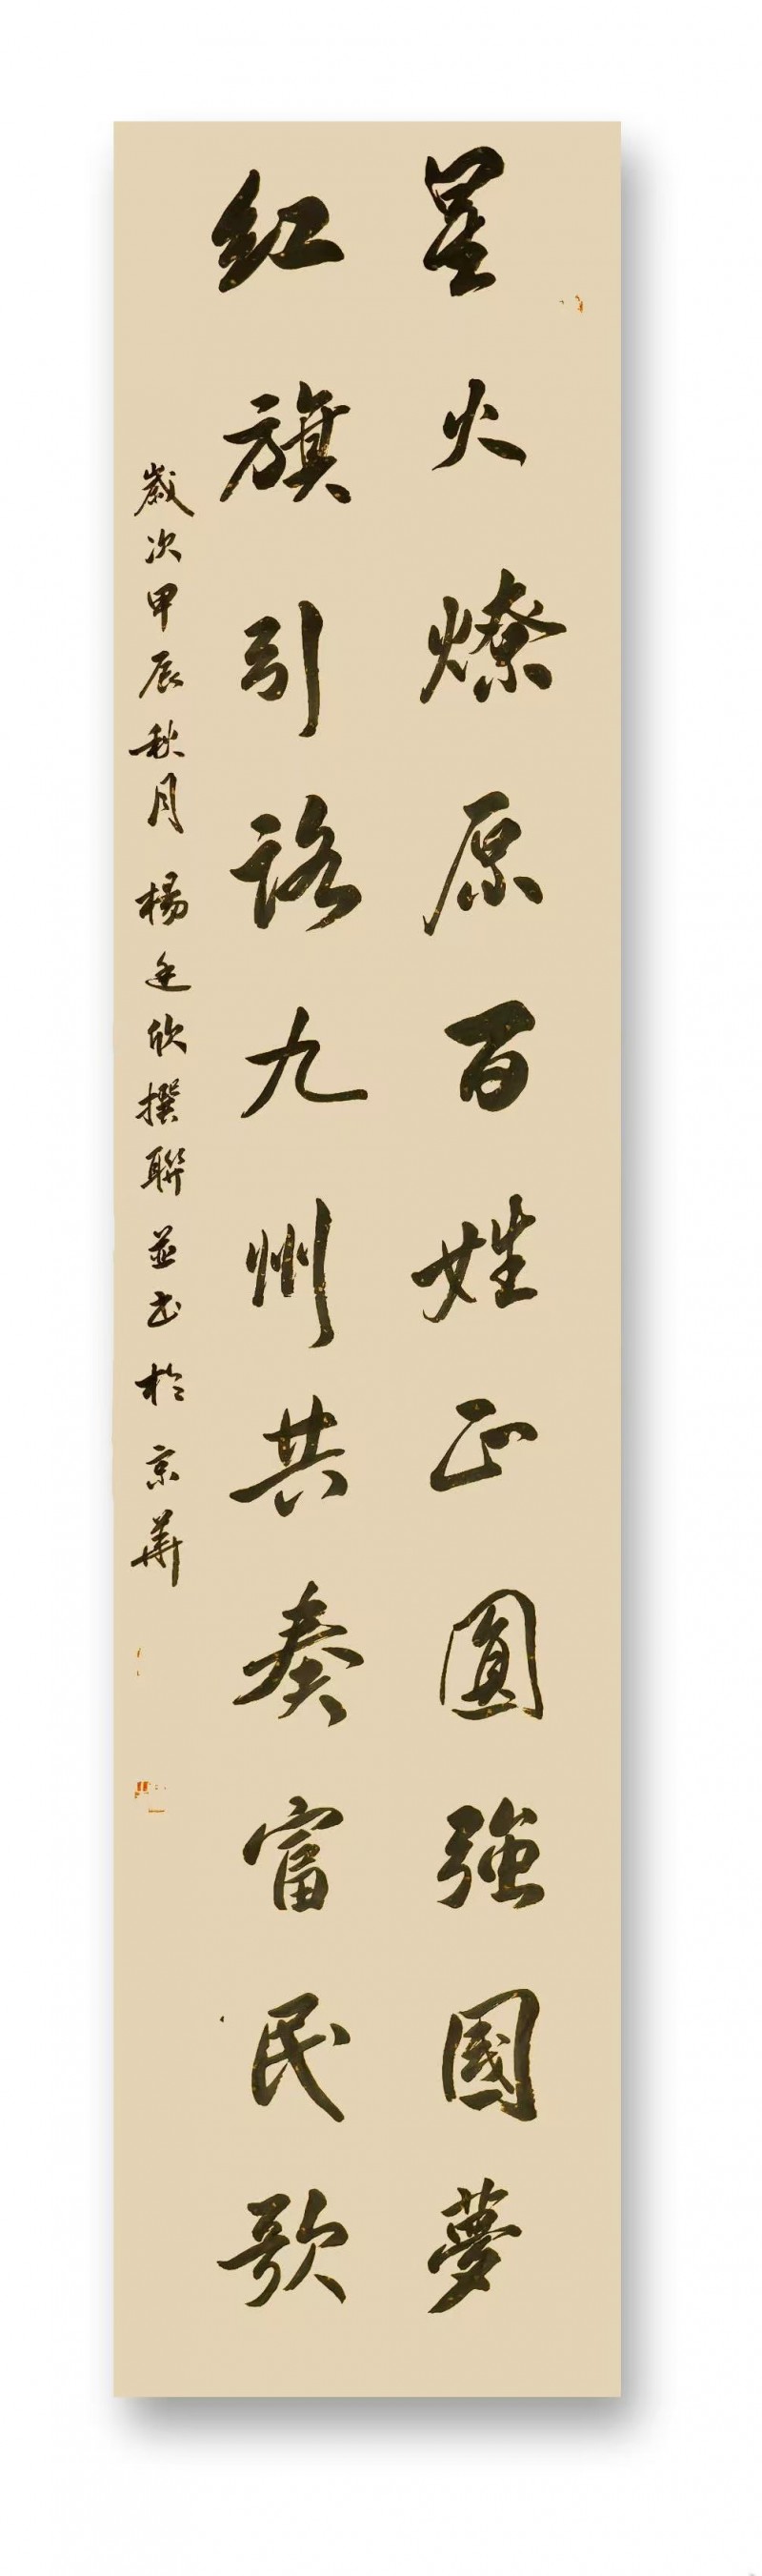 星火燎原百姓正圓強國夢
红旗引路九州共奏富民歌
歲次甲辰秋月楊廷欣撰聯並书於京華